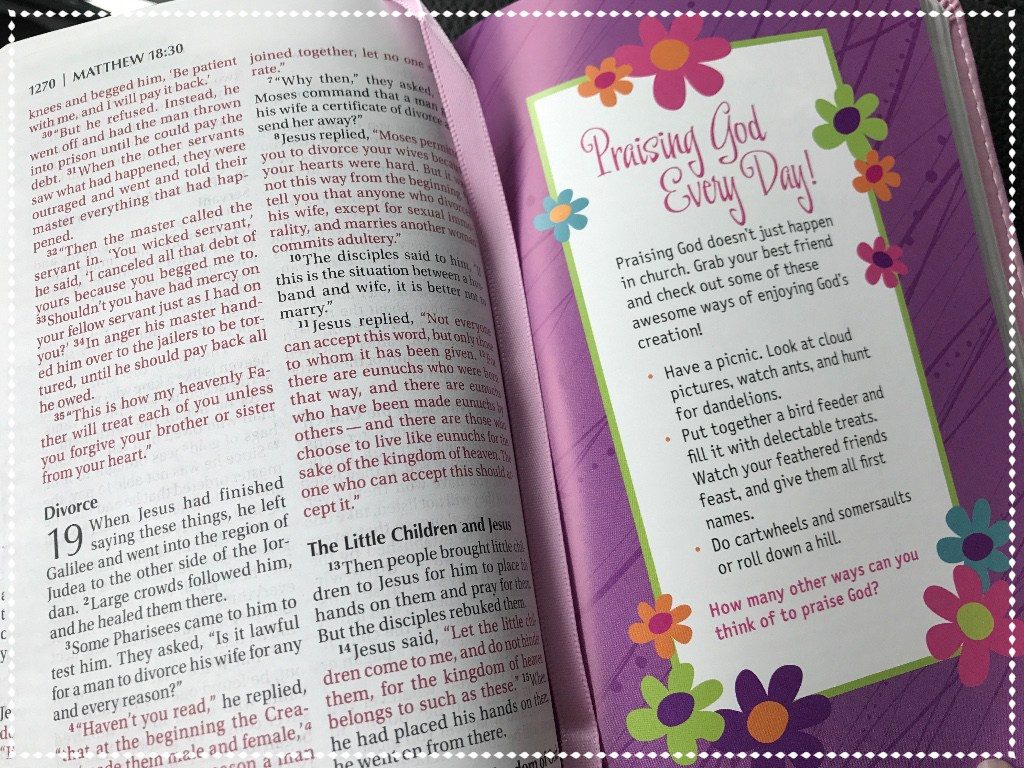 1270 | MATTHEW 18:30
knees and begged him, 'Be patient
with me, and I will pay it back.'
30"But he refused. Instead, he
went off and had the man thrown
into prison until he could pay the
debt. 31When the other servants
saw what had happened, they were
outraged and went and told their
master everything that had hap-
pened.
32"Then the master called the
servant in. 'You wicked servant,'
he said, 'I canceled all that debt of
yours because you begged me to.
33Shouldn't you have had mercy on
your fellow servant just as I had on
you?' 34In anger his master hand-
ed him over to the jailers to be tor-
tured, until he should pay back all
he owed.
35"This is how my heavenly Fa-
ther will treat each of you unless
you forgive your brother or sister
from your heart."
Divorce
19 When Jesus had finished
saying these things, he left
Galilee and went into the region of
Judea to the other side of the Jor-
dan. 2Large crowds followed him,
and he healed them there.
3Some Pharisees came to him to
test him. They asked, "Is it lawful
for a man to divorce his wife for any
and every reason?"
4"Haven't you read," he replied,
"that at the beginning the Crea-
made them male and female,'a
reason a man
joined together, let no one
rate."
7"Why then," they asked,
Moses command that a man
his wife a certificate of divorce
send her away?"
8Jesus replied, "Moses
you to divorce your wives
your hearts were hard. But it
not this way from the beginning.
tell you that anyone who
his wife, except for sexual
rality, and marries another woman
commits adultery."
10The disciples said to him,
this is the situation between a
band and wife, it is better not to
marry."
11Jesus replied, "Not everyone
can accept this word, but only those
to whom it has been given.
there are eunuchs who were born
that way, and there are eunuchs
who have been made eunuchs by
others — and there are those who
choose to live like eunuchs for the
sake of the kingdom of heaven. The
one who can accept this should ac-
cept it."
The Little Children and Jesus
13Then people brought little chil
dren to Jesus for him to place his
hands on them and pray for them.
But the disciples rebuked them.
14Jesus said, "Let the little chil
dren come to me, and do not hinder
them, for the kingdom of heaven
belongs to such as these." 15When
he had placed his hands on them,
he went on from there.
Praising God
Every Day!
Praising God doesn't just happen
in church. Grab your best friend
and check out some of these
awesome ways of enjoying God's
creation!
• Have a picnic. Look at cloud
pictures, watch ants, and hunt
for dandelions.
• Put together a bird feeder and
fill it with delectable treats.
Watch your feathered friends
feast, and give them all first
names.
• Do cartwheels and somersaults
or roll down a hill.
How many other ways can you
think of to praise God?